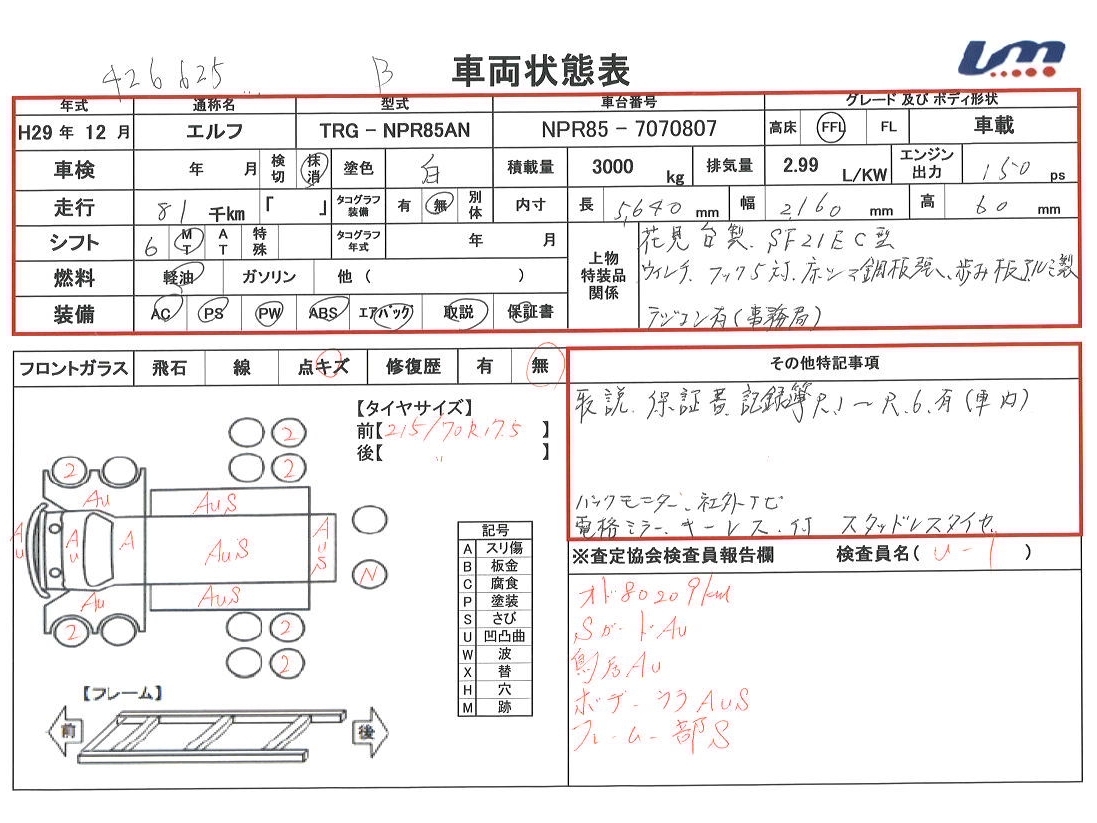 426625 B 車両状態表 Um
年式 通称名 型式 車台番号 グレード 及び ボディ形状
H29 年 12 月 エルフ TRG - NPR85AN NPR85 - 7070807 高床 FFL FL 車載
車検 年 月 検切 抹消 塗色 白 積載量 3000 kg 排気量 2.99 L/KW エンジン出力 150 ps
走行 81 千km 「 」 タコグラフ装備 有 無 別体 内寸 長 5,640 mm 幅 2,160 mm 高 60 mm
シフト 6 MT AT 特殊 タコグラフ年式 年 月 上物特装品関係 花見台製、SF21EC型
燃料 軽油 ガソリン 他 ( ) ウィンチ、フック5対、床シマ鋼板張、歩み板アルミ製
装備 AC PS PW ABS エアバック 取説 保証書 ラジコン有(事務局)
フロントガラス 飛石 線 点キズ 修復歴 有 無 その他特記事項
【タイヤサイズ】
前【215/70R17.5 】
後【 〃 】
取説、保証書、記録簿R.1〜R.6.有(車内)
バックモニター、社外ナビ
電格ミラー、キーレス、付 スタッドレスタイヤ
2 2
2 2
Au AuS
Au Au A AuS AuS N
Au AuS
2 2
2
記号
A スリ傷
B 板金
C 腐食
P 塗装
S さび
U 凹凸曲
W 波
X 替
H 穴
M 跡
※査定協会検査員報告欄 検査員名( U-1 )
オド80209km
SガードAu
鳥居Au
ボデーウラAuS
フレーム部S
【フレーム】
前 後